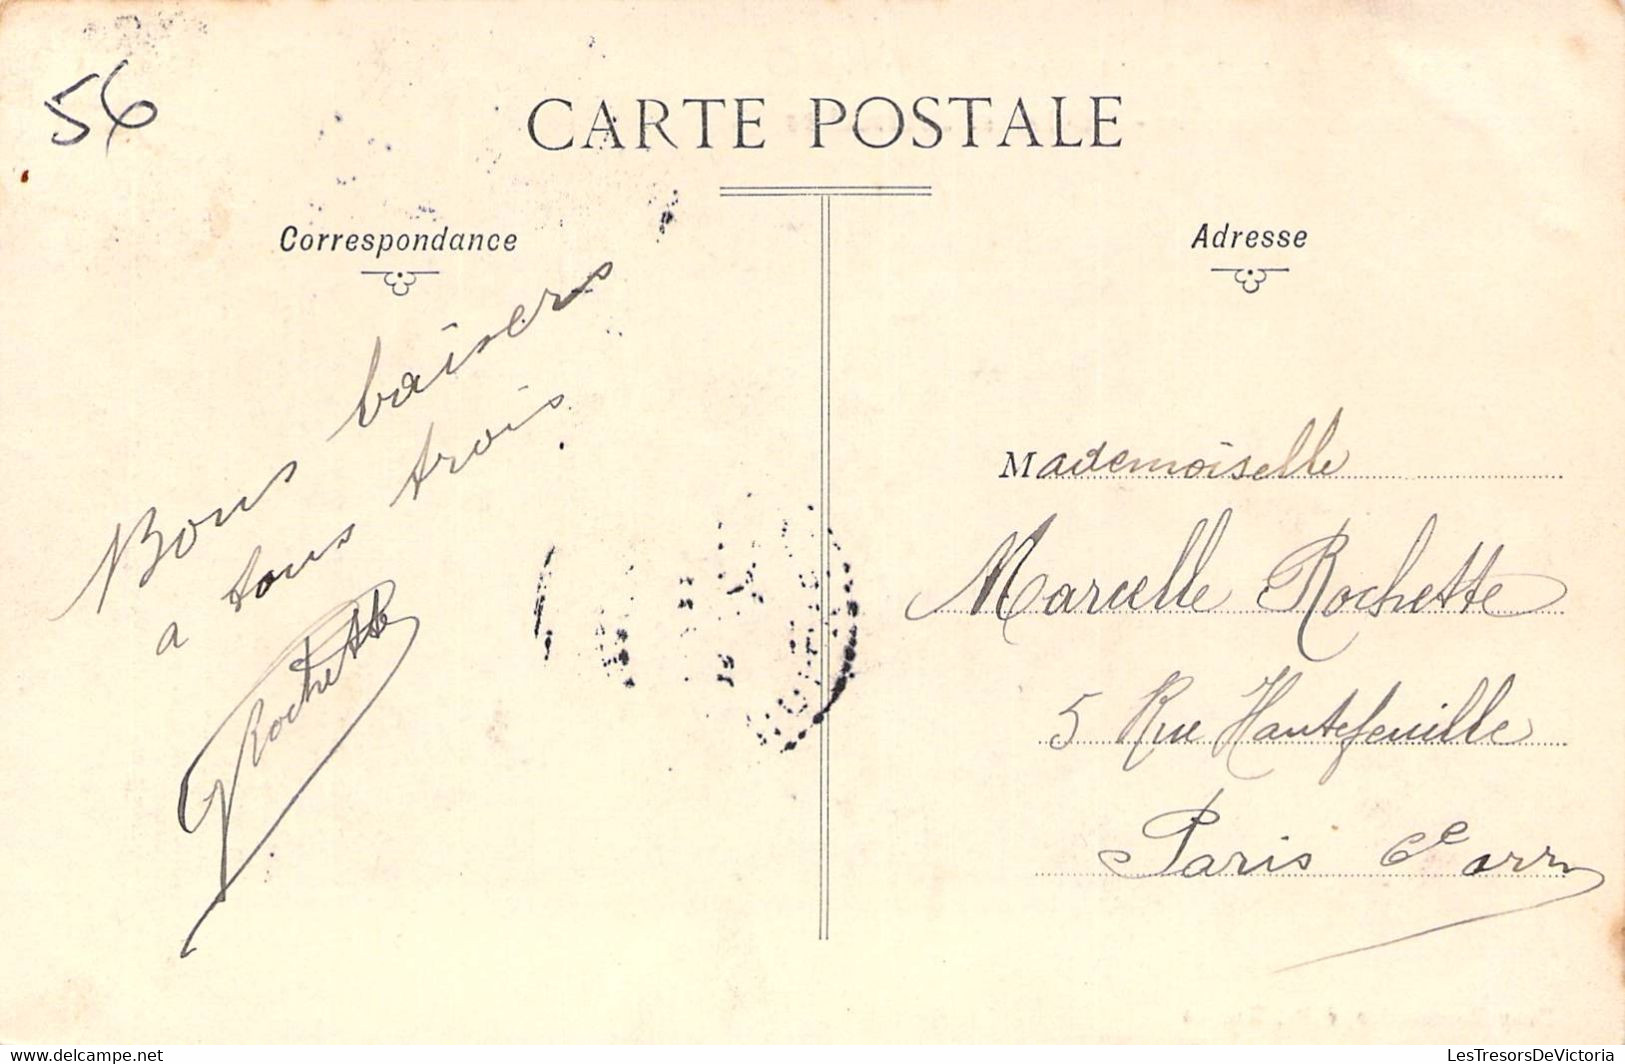 56
CARTE POSTALE
Correspondance
Adresse
Bons baisers
a tous trois.
Rochette
Mademoiselle
Marcelle Rochette
5 Rue Hautefeuille
Paris 6e arr
www.delcampe.net
LesTresorsDeVictoria